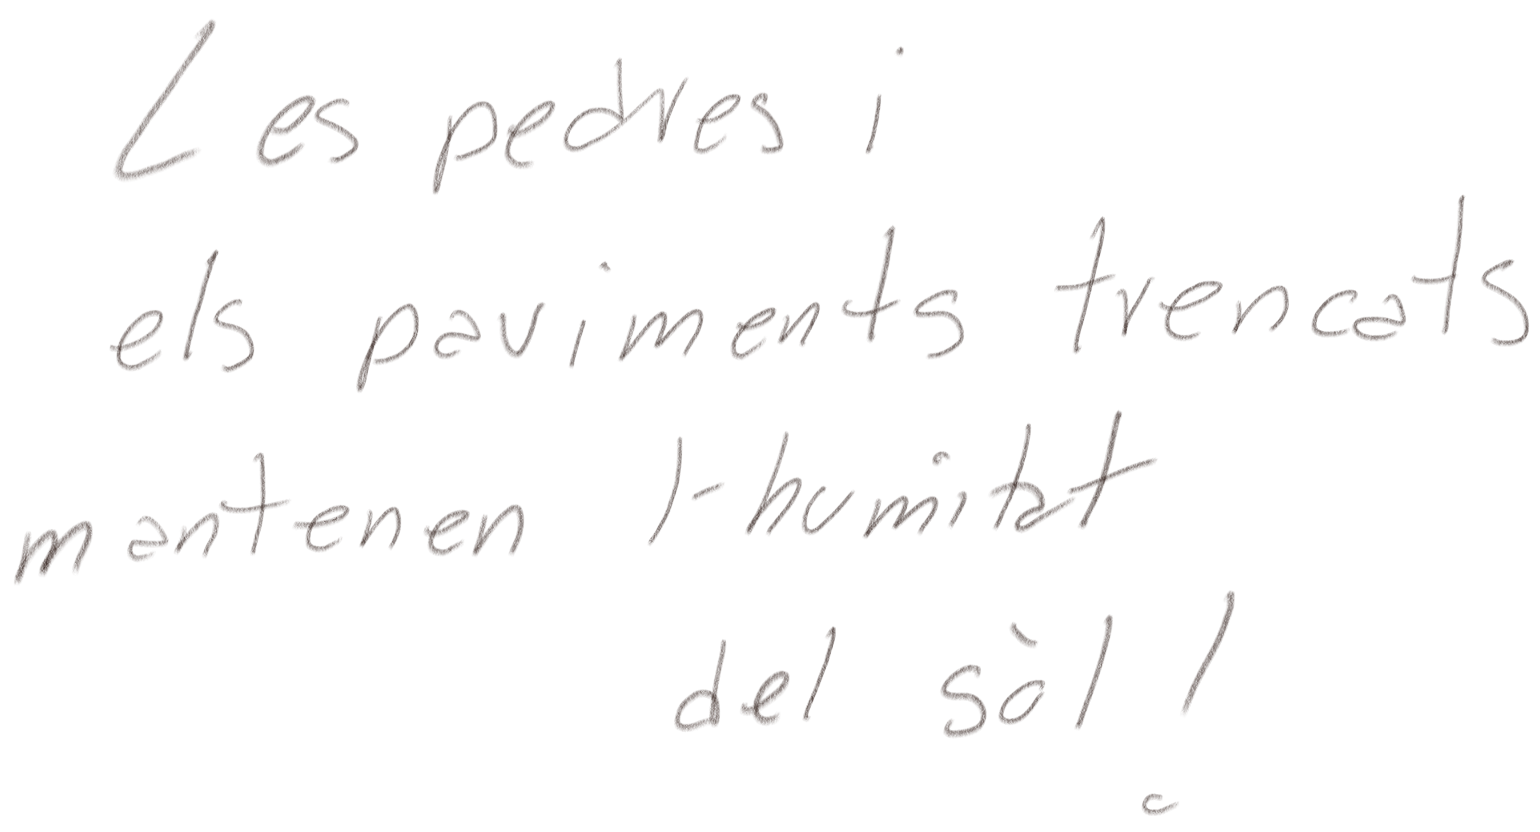 Les pedres i
els paviments trencats
mantenen l-humitat
del sòl!